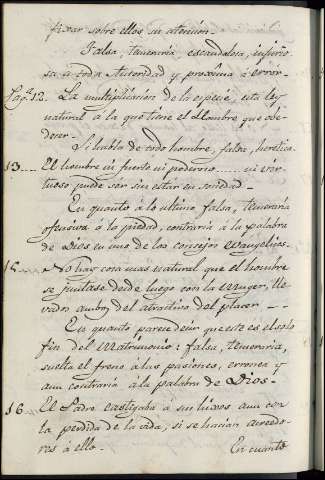 fixar sobre ellos su atencion.
Falsa, temeraria, escandalosa, injurio-
sa à toda Autoridad y proxima à error-
Pag.ª 12. La multiplicacion de la especie, esta ley
natural à la qüe tiene el Hombre que obe-
decer.
Si habla de todo hombre, falsa, heretica.
13.... El hombre ni fuerte ni poderoso ..... ni vir-
tuoso puede ser sin estar en sociedad.
En quanto à lo ultimo, falsa, temeraria
ofensiva à la piedad, contraria à la palabra
de Dios en uno de los consejos evangelicos.
No hay cosa mas natural que el hombre
se juntase desde luego con la muger, lle-
vados ambos del atractivo del placer
En quanto parece decir que este es el solo
fin del Matrimonio: falsa, temeraria,
suelta el freno à las pasiones, erronea y
aun contraria à la palabra de Dios-
16. El Padre castigaba à sus hixos aun con
la perdida de la vida, si se hacian acreedo-
res à ello.
En cuanto